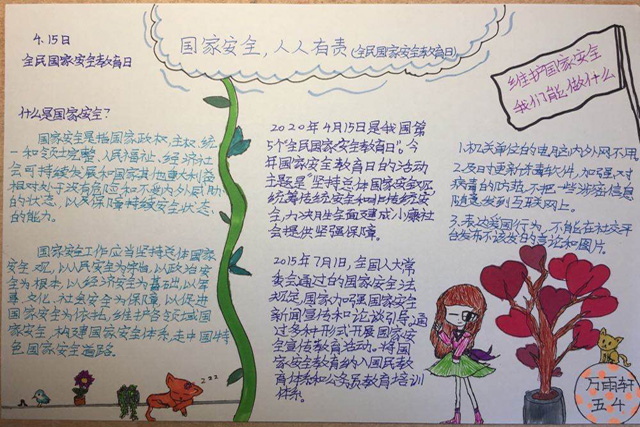 4.15日
全民国家安全教育日
国家安全，人人有责（全民国家安全教育日）
维护国家安全
我们能做什么
什么是国家安全？
国家安全是指国家政权、主权、统
一和领土完整、人民福祉、经济社
会可持续发展和国家其他重大利益
相对处于没有危险和不受内外威胁
的状态，以及保障持续安全状态
的能力。
国家安全工作应当坚持总体国家
安全观，以人民安全为宗旨，以政治安
全为根本，以经济安全为基础，以军
事、文化、社会安全为保障，以促进
国家安全为依托，维护各领域国
家安全，构建国家安全体系，走中国特
色国家安全道路。
2020年4月15日是我国第
5个"全民国家安全教育日"。今
年国家安全教育日的活动
主题是"坚持总体国家安全观，
统筹传统安全和非传统安
全，为决胜全面建成小康社
会提供坚强保障。
2015年7月1日，全国人大常
委会通过的国家安全法
规定，国家加强国家安全
新闻宣传和舆论引导，通
过多种形式开展国家安
全宣传教育活动。将国
家安全教育纳入国民教
育体系和公务员教育培训
体系。
1.机关单位的电脑，内外网不用
2.及时更新杀毒软件，加强对
病毒的防范，不把一些涉密信息
随意发到互联网上。
3.表达爱国行为，不能在社交平
台发布不该发的言论和图片。
zzz
万雨轩
五4